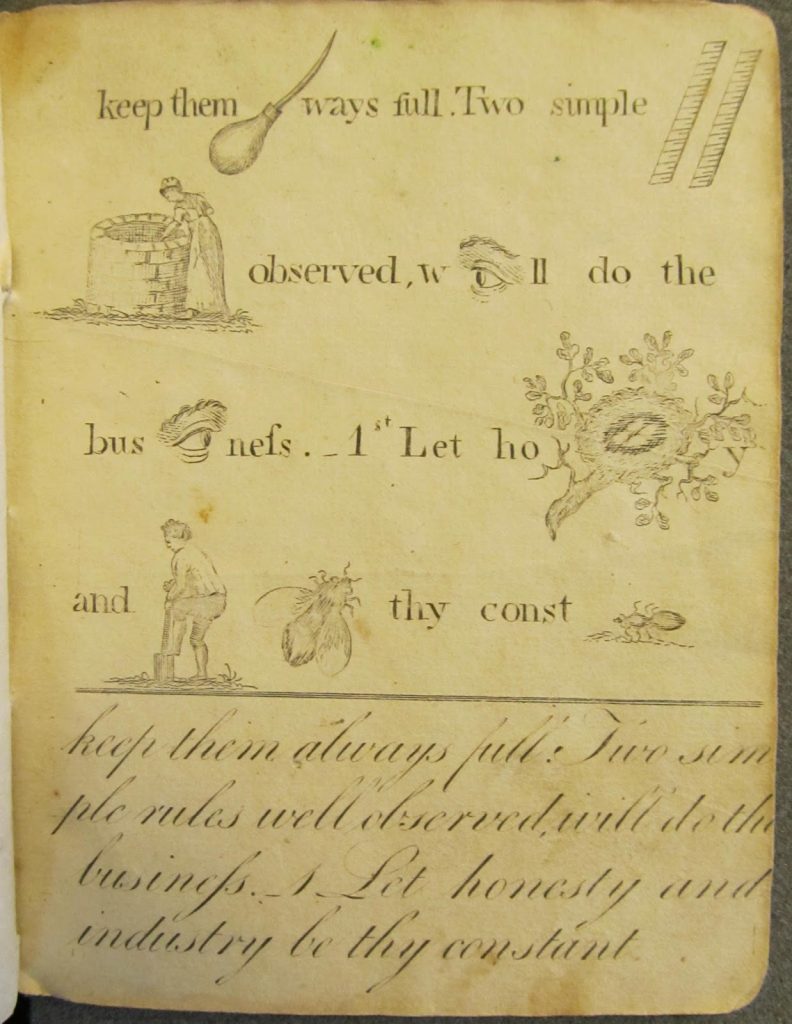 keep them ways full. Two simple
observed, w ll do the
bus neſs. _ 1st Let ho y
and thy const
keep them always full: Two sim
ple rules well observed, will do the
busineſs. _ 1 Let honesty and
industry be thy constant